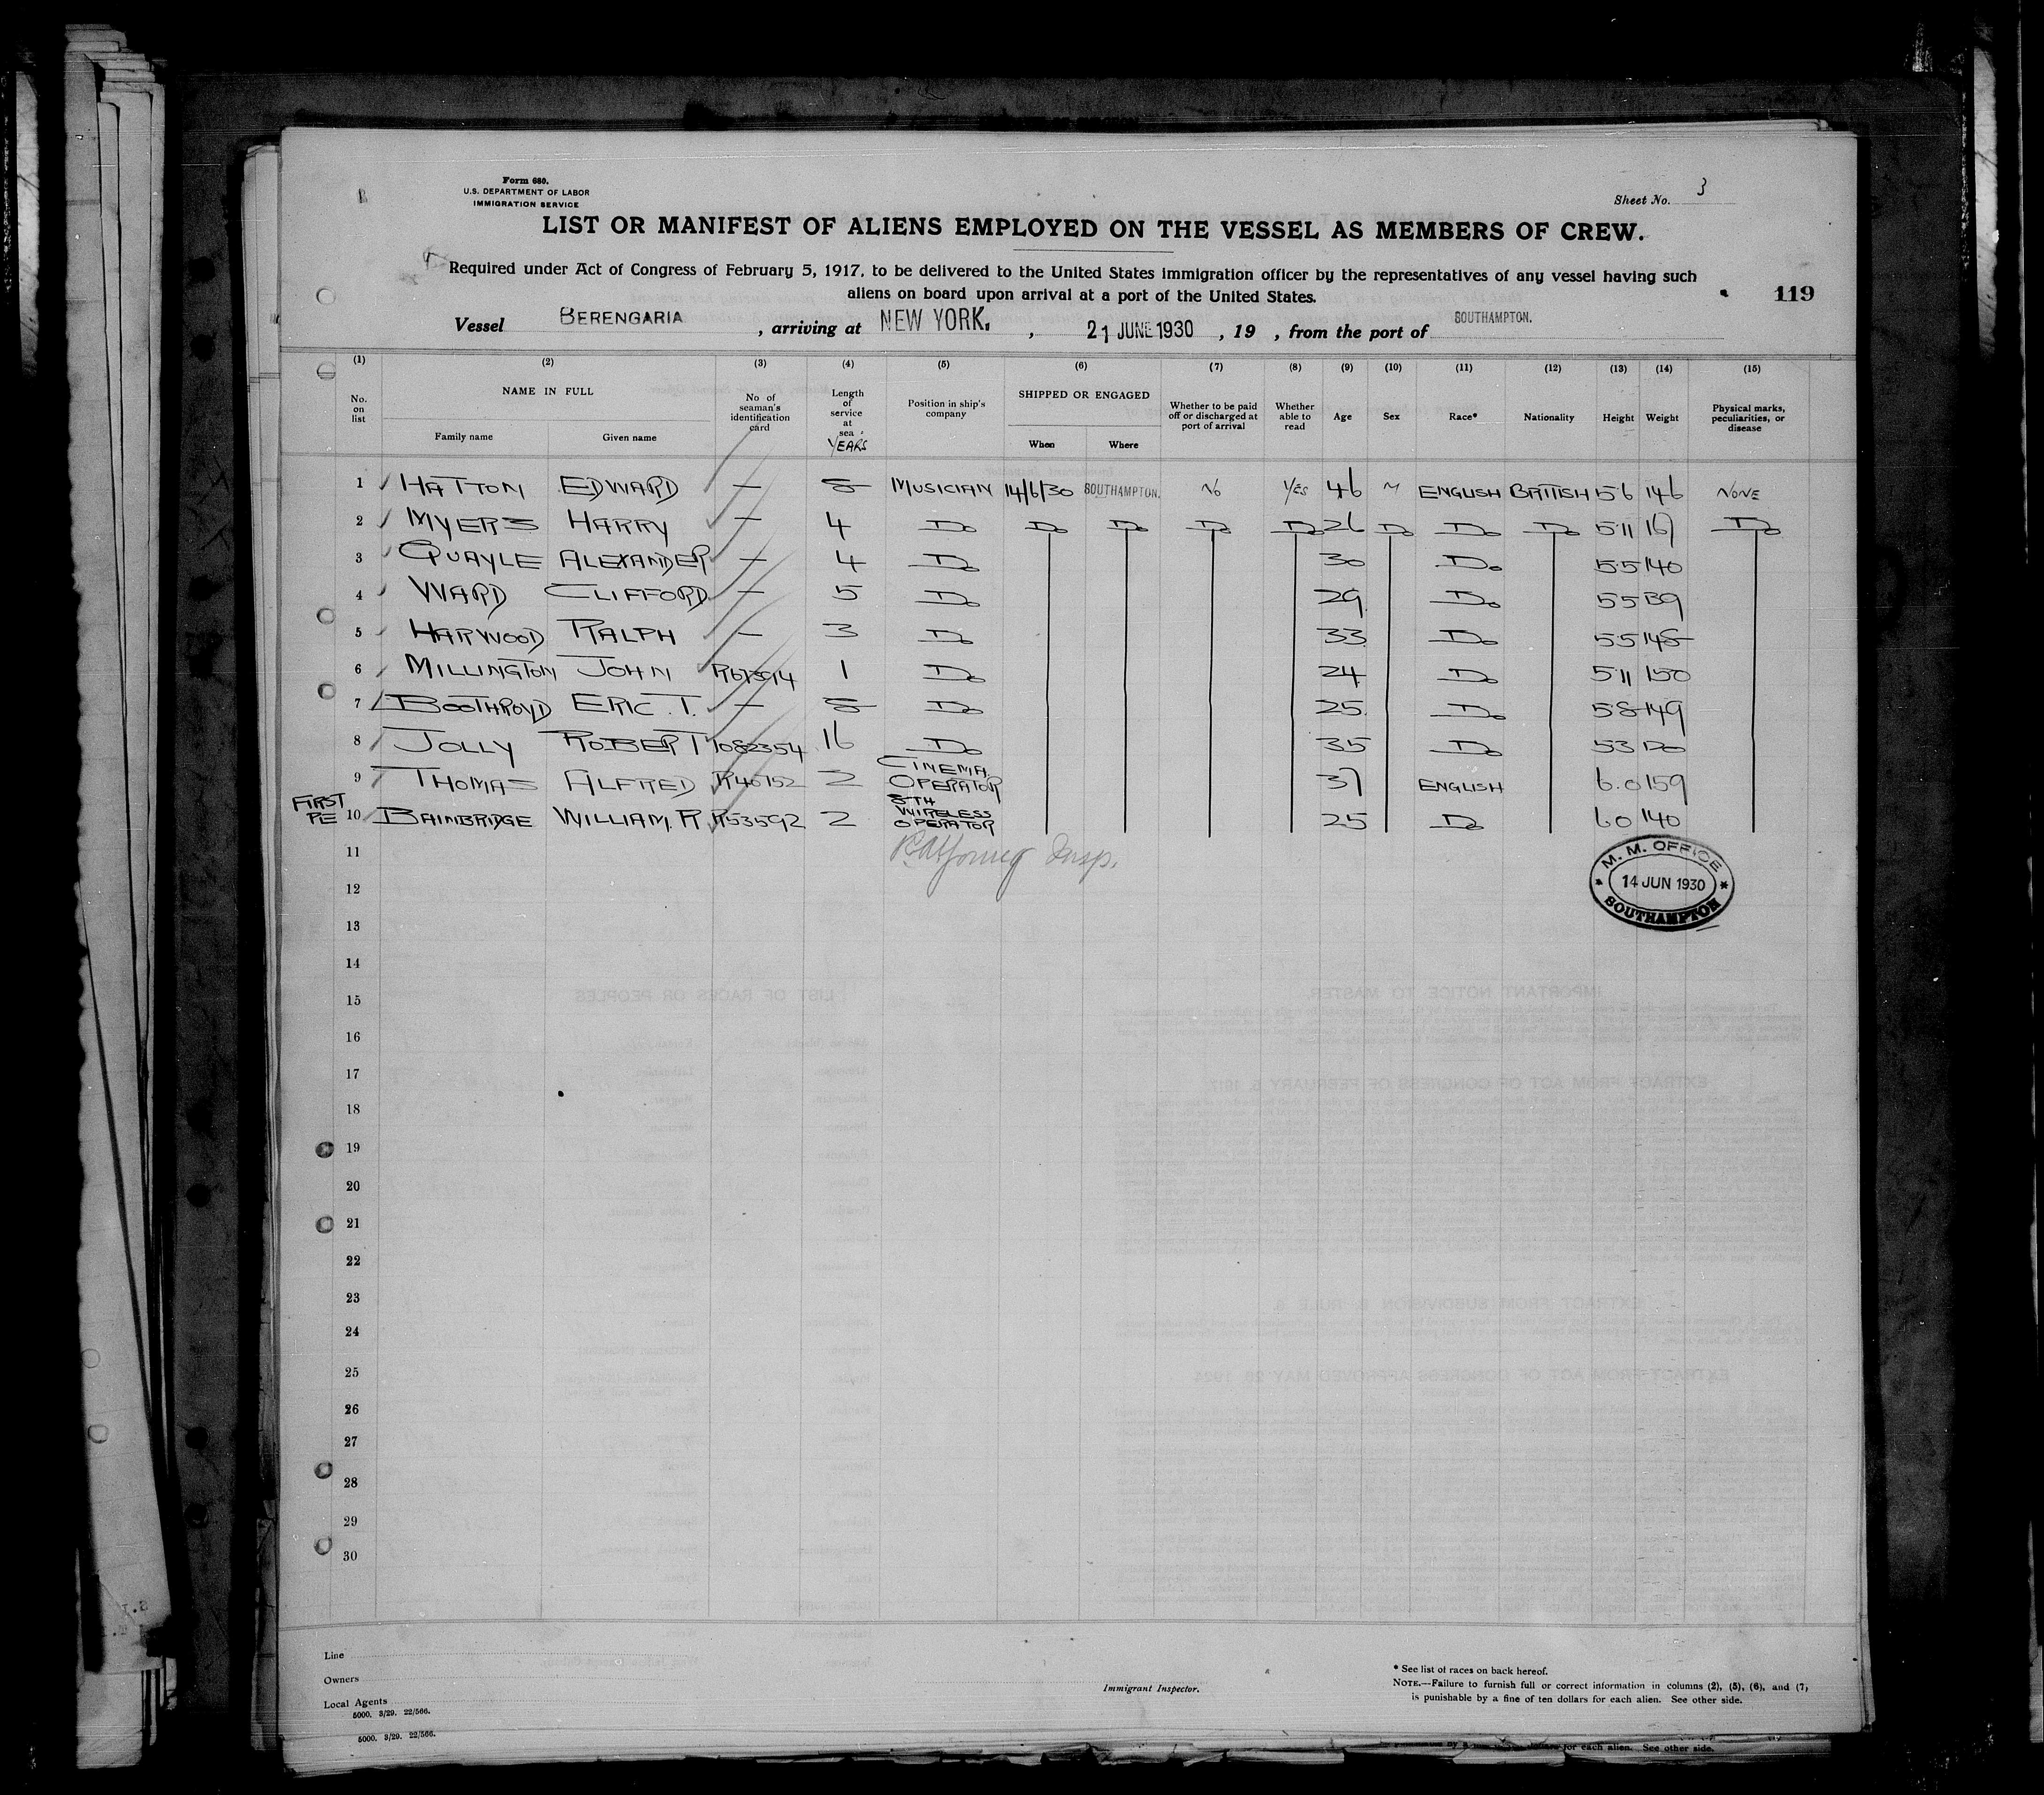 Form 680.
U.S. DEPARTMENT OF LABOR
IMMIGRATION SERVICE
Sheet No. 3
LIST OR MANIFEST OF ALIENS EMPLOYED ON THE VESSEL AS MEMBERS OF CREW.
Required under Act of Congress of February 5, 1917, to be delivered to the United States immigration officer by the representatives of any vessel having such
aliens on board upon arrival at a port of the United States.
119
Vessel BERENGARIA, arriving at NEW YORK, 21 JUNE 1930, 19 , from the port of SOUTHAMPTON.
(1) (2) (3) (4) (5) (6) (7) (8) (9) (10) (11) (12) (13) (14) (15)
No. on list NAME IN FULL Family name Given name No of seaman's identification card Length of service at sea YEARS Position in ship's company SHIPPED OR ENGAGED When Where Whether to be paid off or discharged at port of arrival Whether able to read Age Sex Race* Nationality Height Weight Physical marks, peculiarities, or disease
1 HATTON EDWARD — 8 MUSICIAN 14/6/30 SOUTHAMPTON. NO YES 46 M ENGLISH BRITISH 5.6 146 NONE
2 MYERS HARRY — 4 Do Do Do Do Do 26 Do Do Do 5.11 167 Do
3 QUAYLE ALEXANDER — 4 Do 30 Do 5.5 140
4 WARD CLIFFORD — 5 Do 29 Do 5.5 139
5 HARWOOD RALPH — 3 Do 33 Do 5.5 148
6 MILLINGTON JOHN R67394 1 Do 24 Do 5.11 150
7 BOOTHROYD ERIC. T. — 8 Do 25. Do 5.8 149
8 JOLLY ROBERT 1082354 16 Do 35 Do 5.3 120
9 THOMAS ALFRED R46152 2 CINEMA OPERATOR 37 ENGLISH 6.0 159
FIRST PE 10 BAINBRIDGE WILLIAM. R R53592 2 8TH WIRELESS OPERATOR 25 Do 6.0 140
11 Insp.
M. M. OFFICE
14 JUN 1930
SOUTHAMPTON
12
13
14
15
16
17
18
19
20
21
22
23
24
25
26
27
28
29
30
Line
Owners
Local Agents
5000. 3/29. 22/566.
Immigrant Inspector.
* See list of races on back hereof.
NOTE.—Failure to furnish full or correct information in columns (2), (5), (6), and (7)
is punishable by a fine of ten dollars for each alien. See other side.
5000. 3/29. 22/566.
for each alien. See other side.